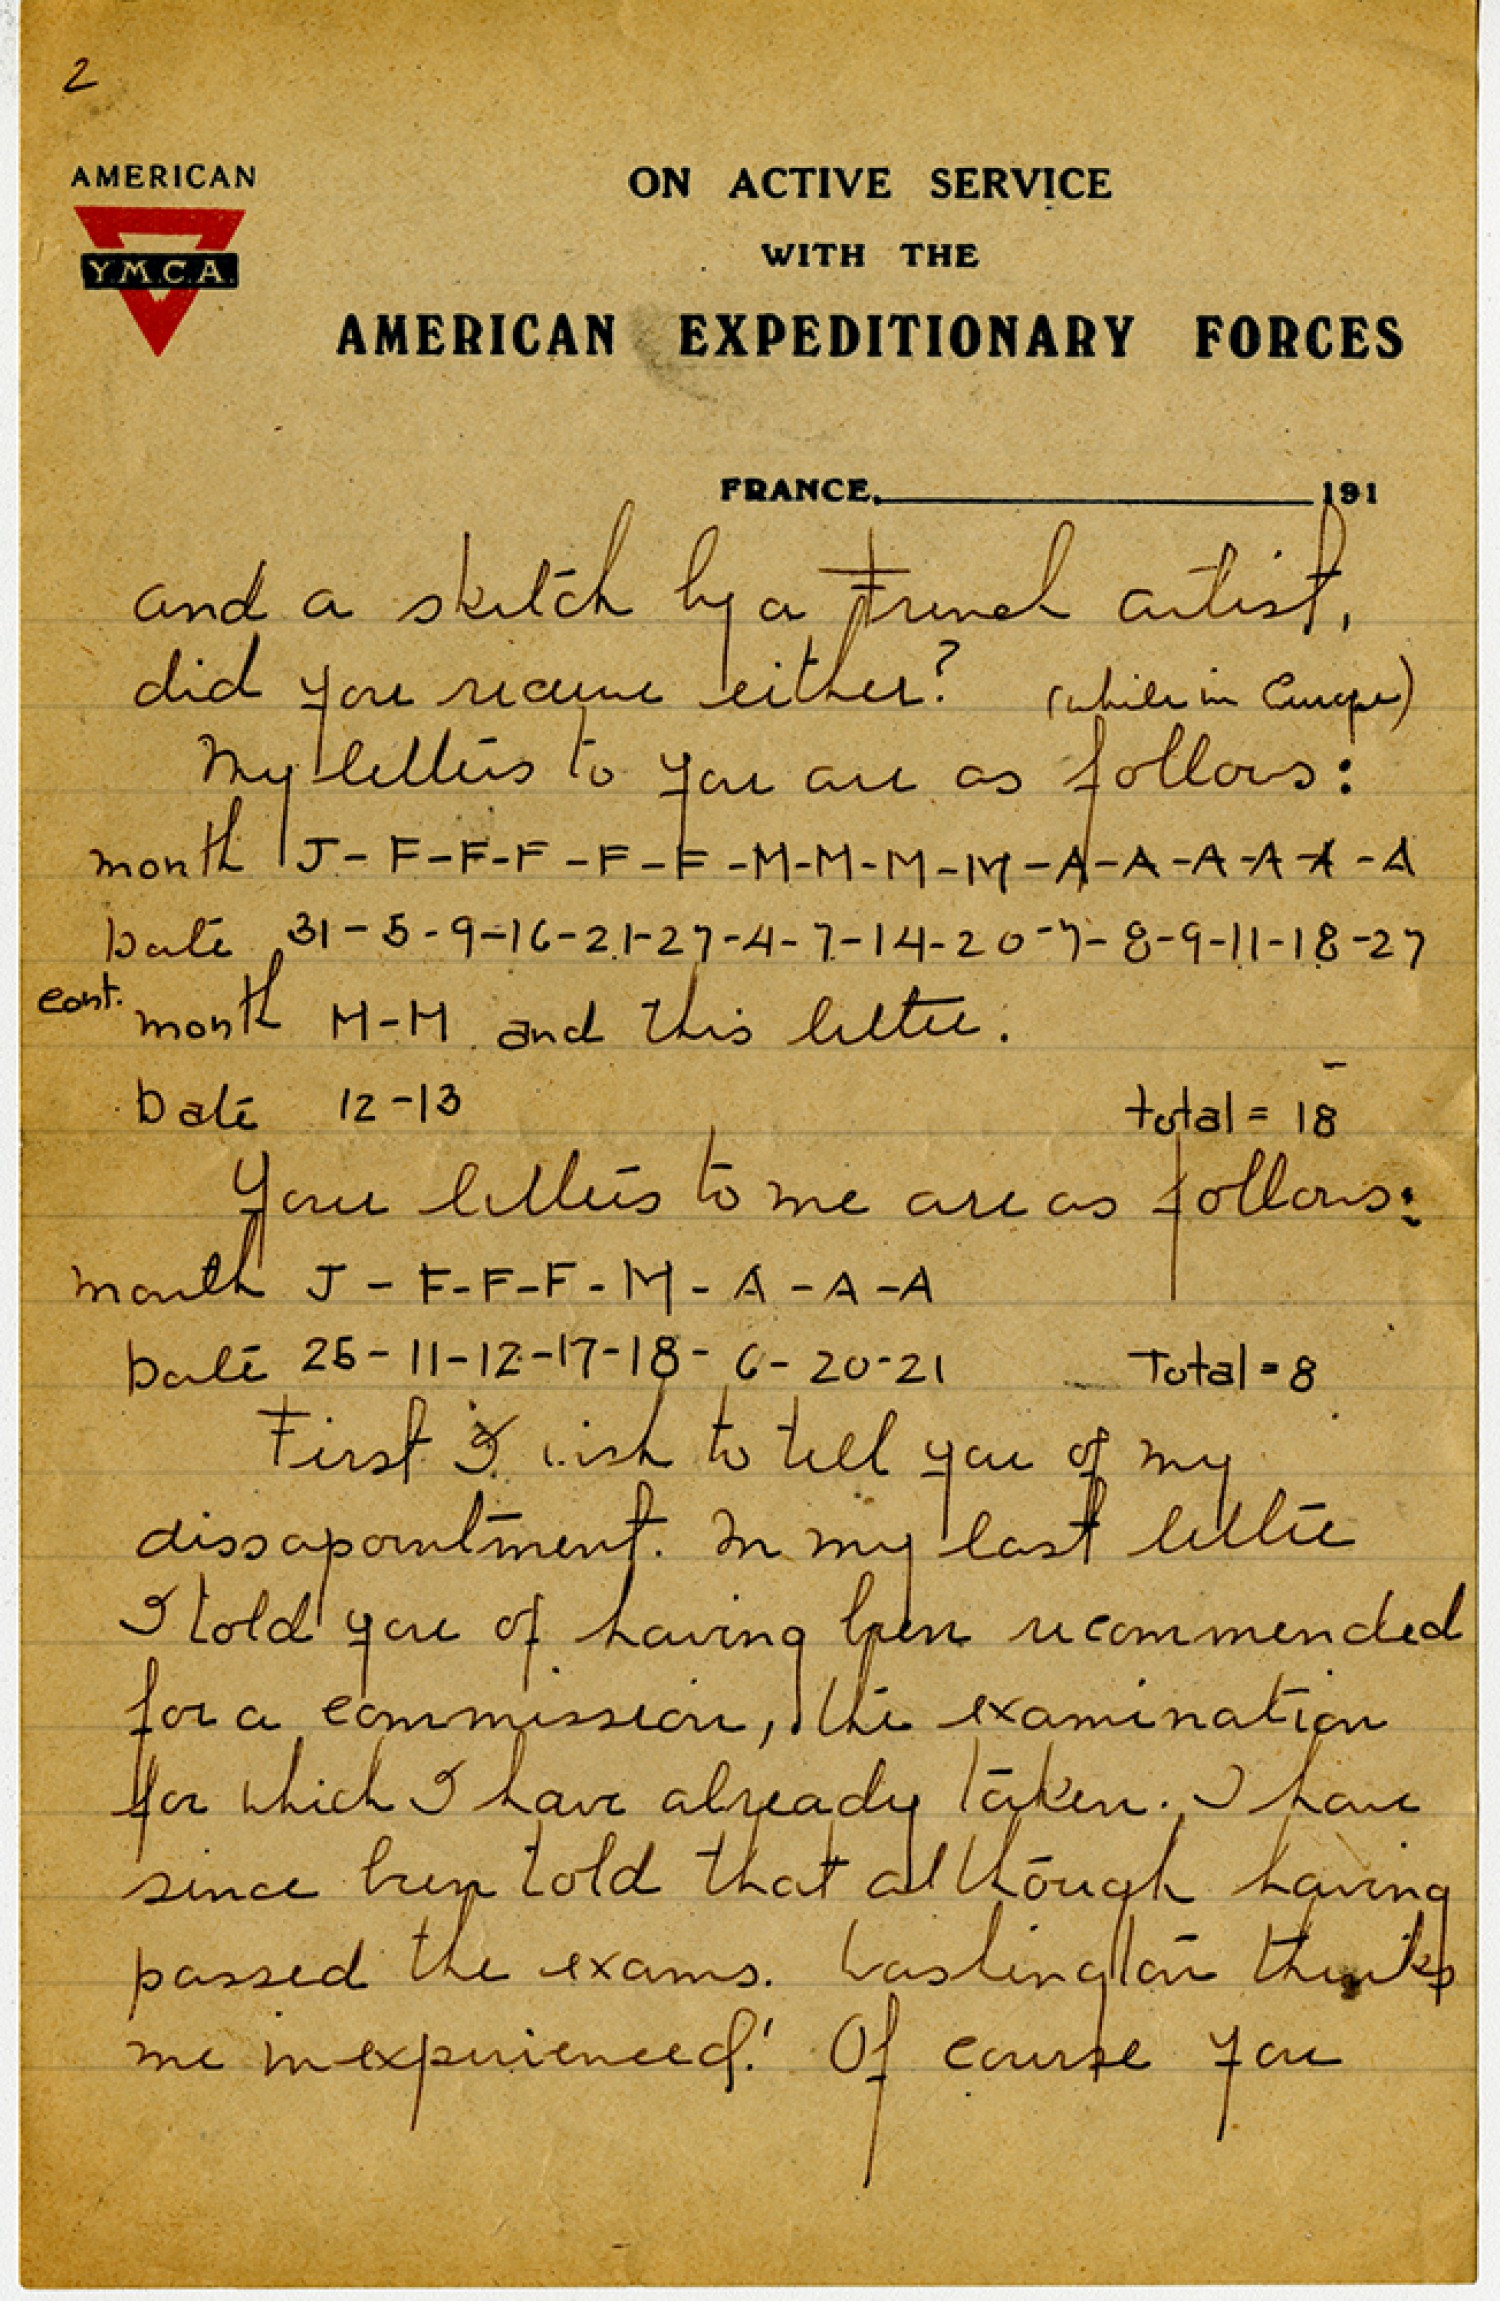 2
AMERICAN
Y.M.C.A.
ON ACTIVE SERVICE
WITH THE
AMERICAN EXPEDITIONARY FORCES
FRANCE, 191
and a sketch by a French artist,
did you receive either? (while in Europe)
My letters to you are as follows:
month J-F-F-F-F-F-M-M-M-M-A-A-A-A-A-A
Date 31-5-9-16-21-27-4-7-14-20-7-8-9-11-18-27
cont. month M-M and this letter.
Date 12-13 total = 18
Your letters to me are as follows:
month J-F-F-F-M-A-A-A
Date 25-11-12-17-18-6-20-21 Total = 8
First I wish to tell you of my
dissapointment. In my last letter
I told you of having been recommended
for a commission, the examination
for which I have already taken. I have
since been told that although having
passed the exams. Washington thinks
me inexperienced! Of course you